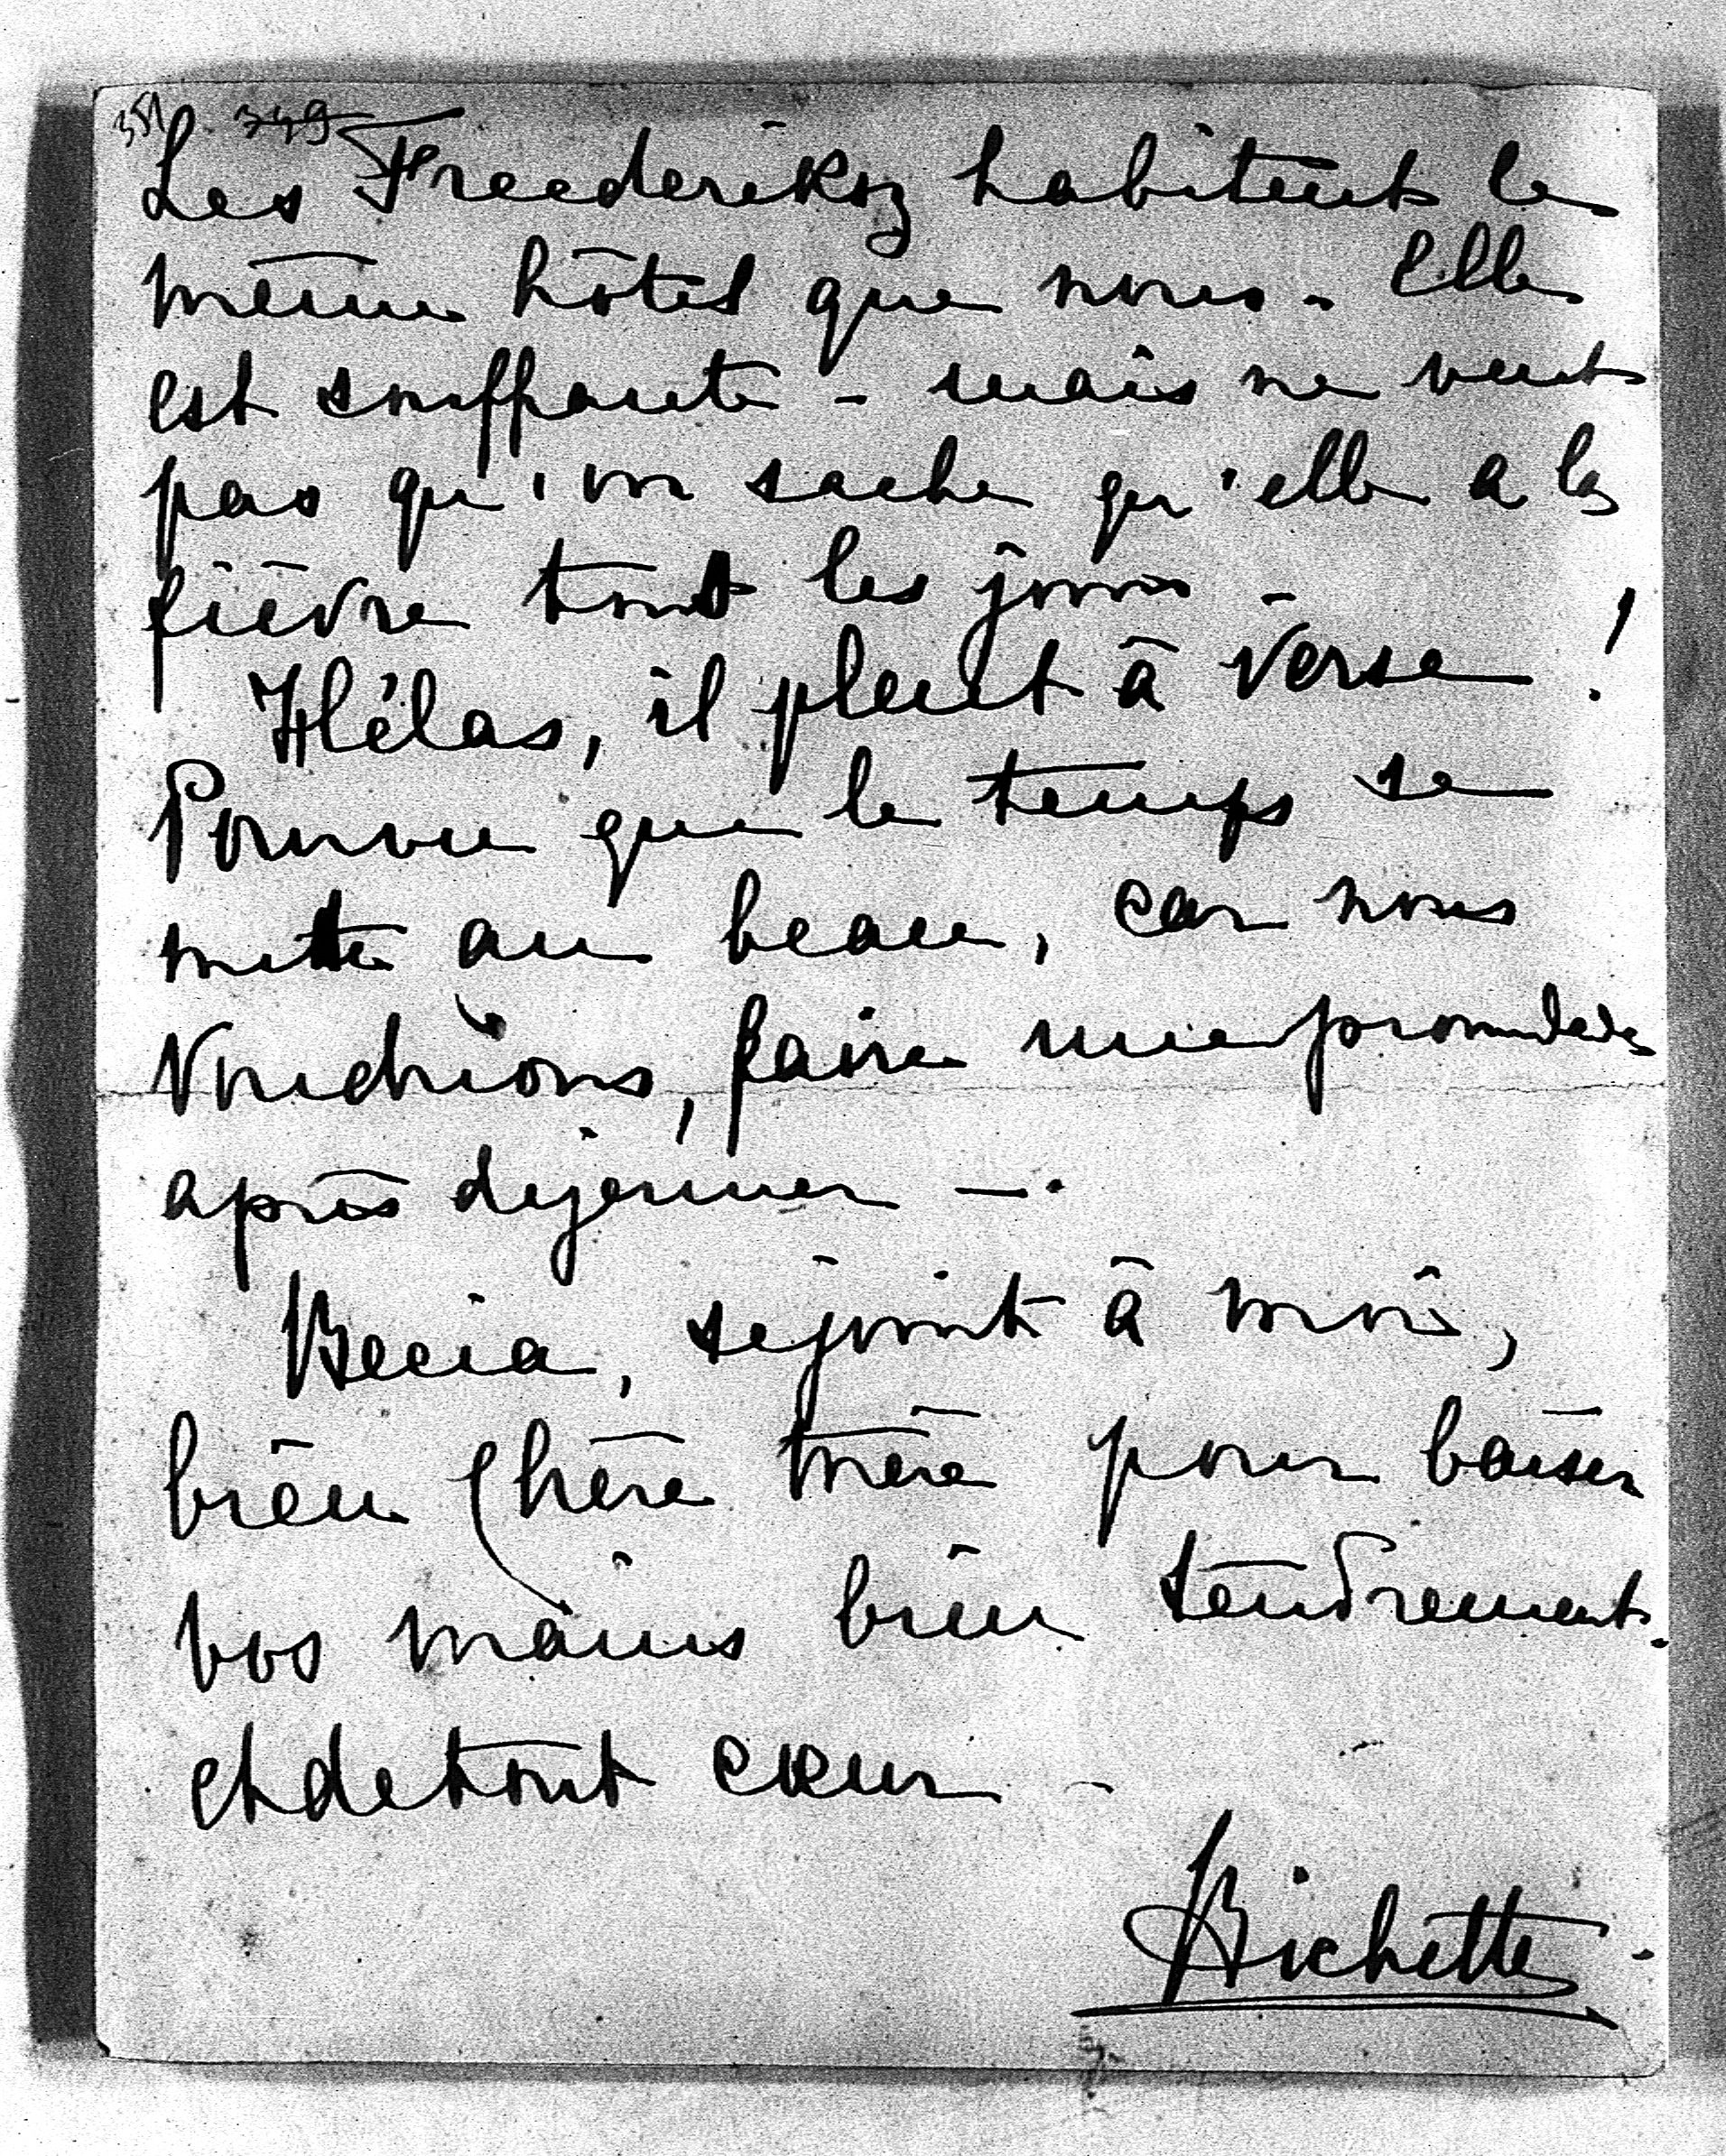 351 349
Les Freederiksz habitent le
même hôtel que nous - Elle
est souffrante - mais ne veut
pas qu'on sache qu'elle a la
fièvre tout les jours -
Hélas, il pleut à verse !
Pourvu que le temps se
mette au beau, car nous
voudrions, faire une promenade
après dejeuner -.
Becia, se joint à moi,
bien chère mère pour baiser
vos mains bien tendrement.
et de tout cœur -
Bichette